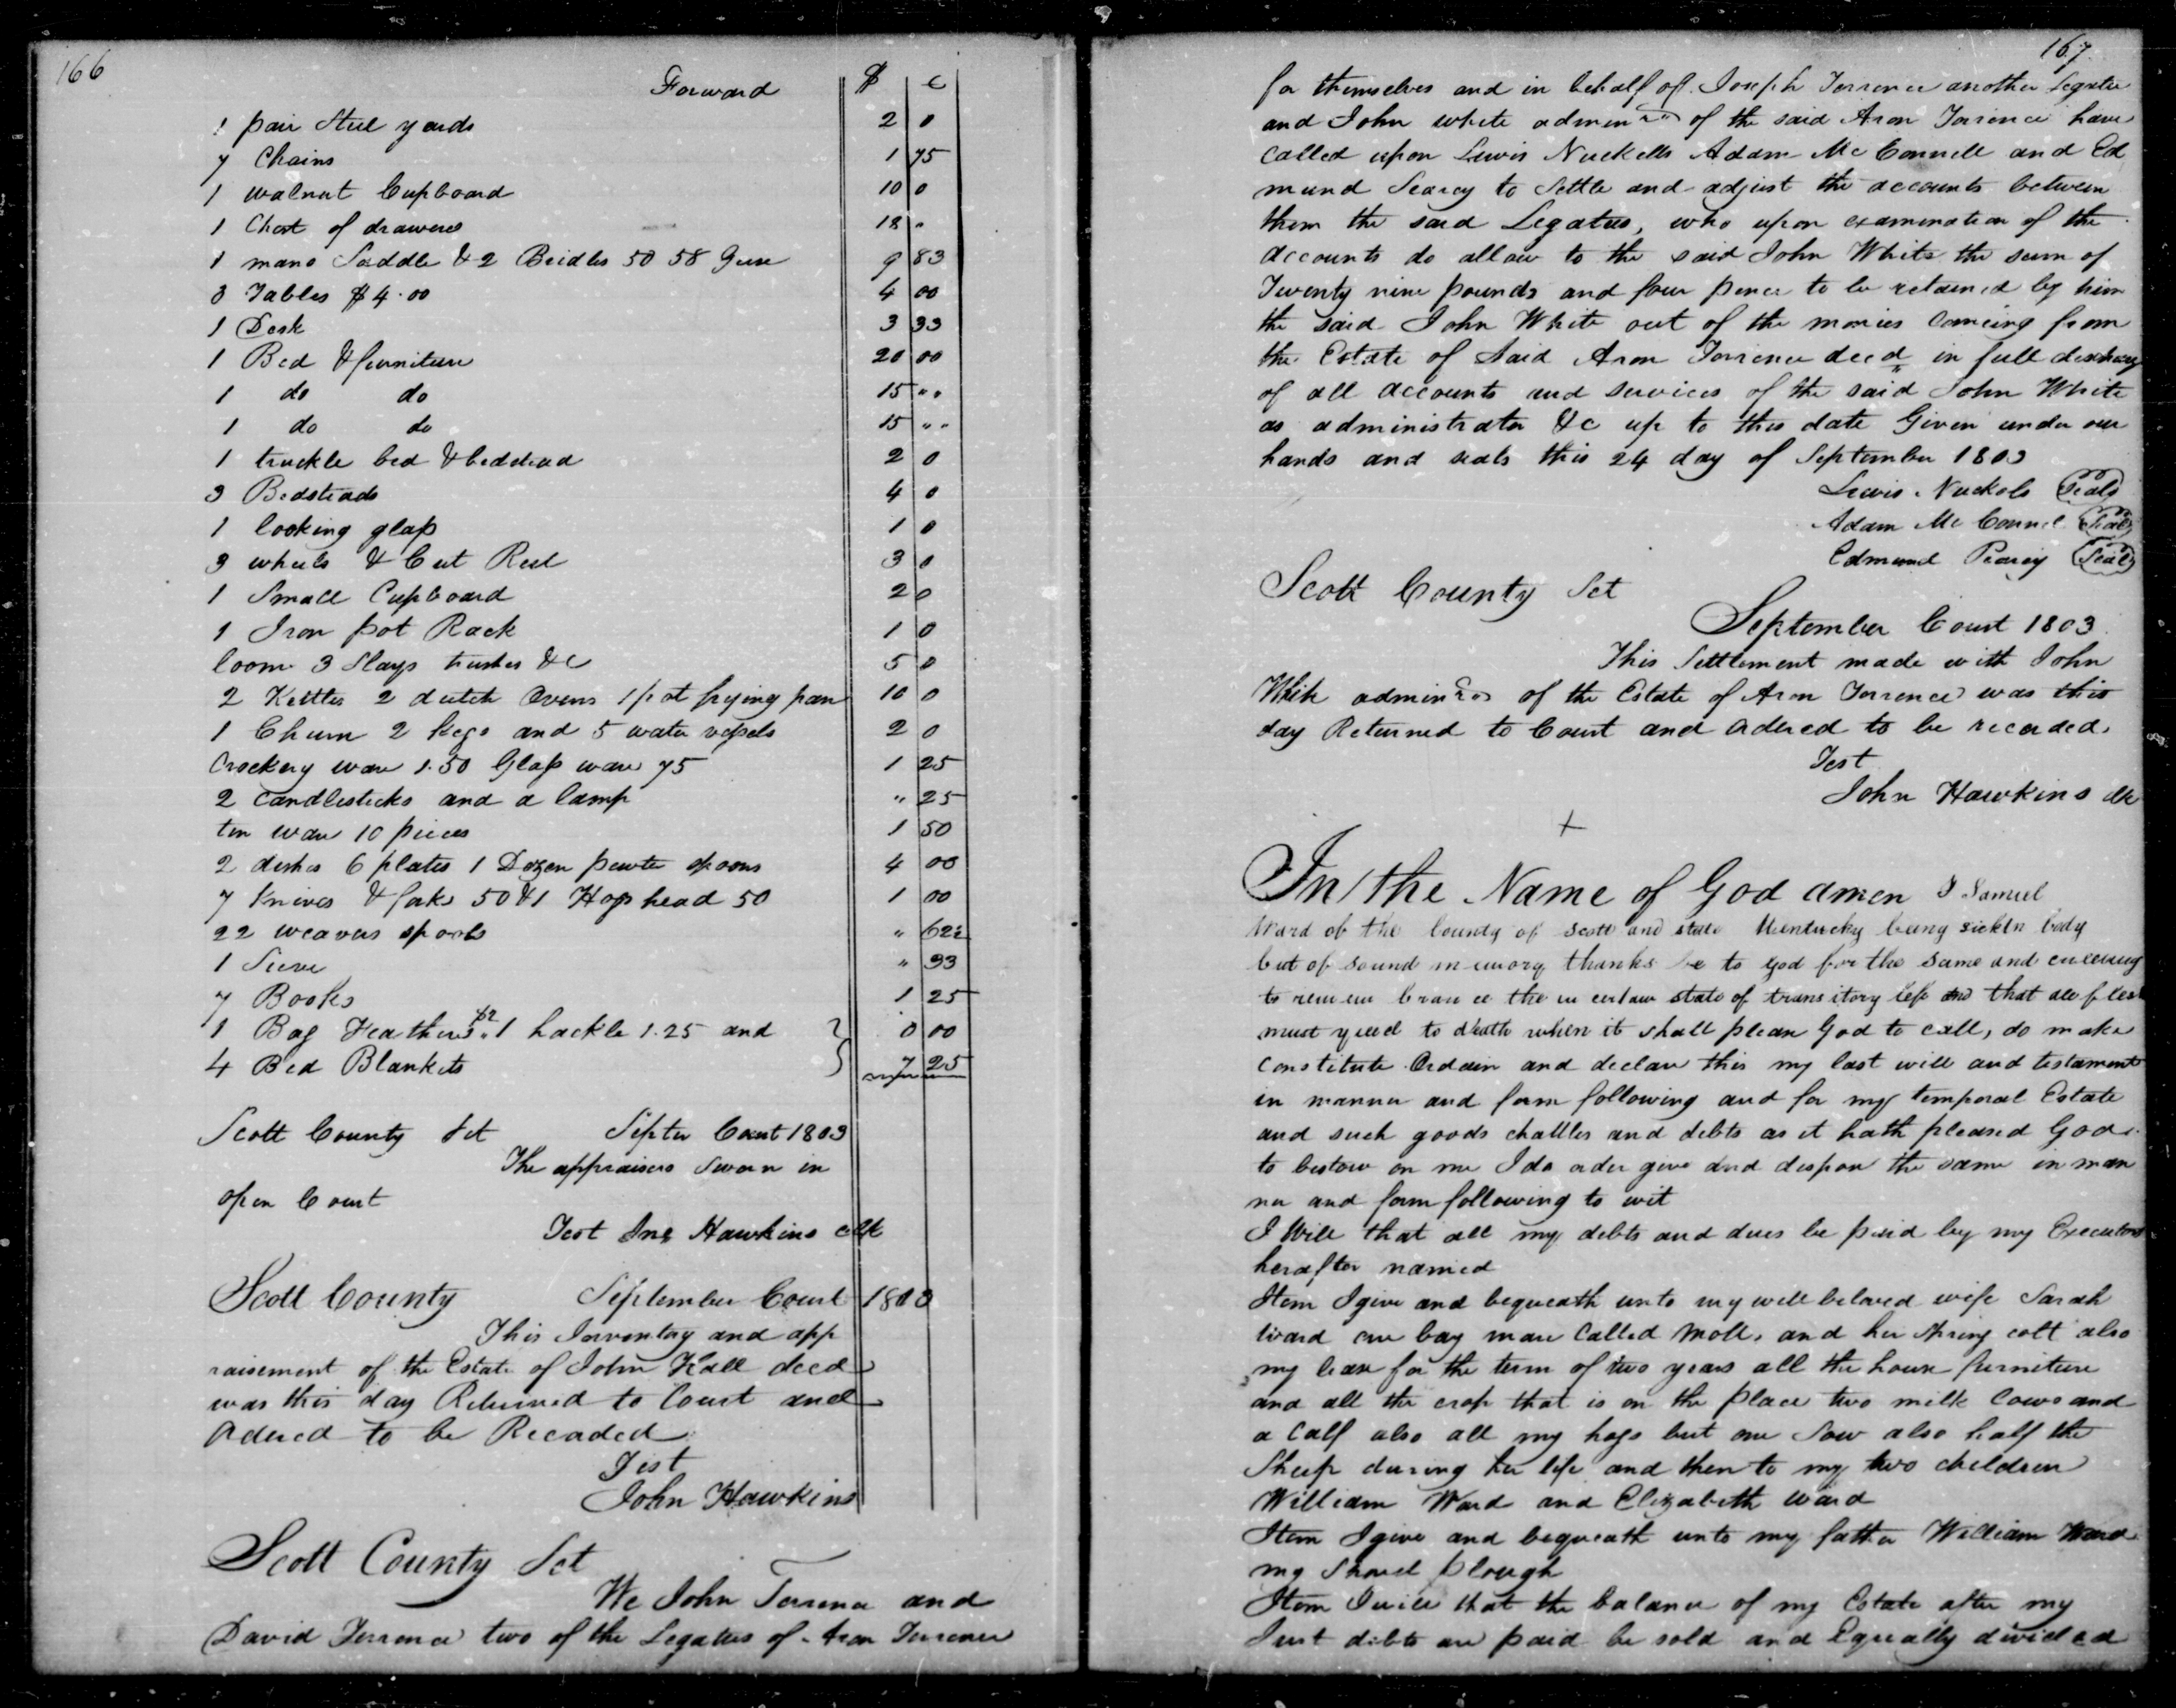 166
Forward $ c
1 pair Steel yards 2 0
7 Chains 1 75
1 walnut Cupboard 10 0
1 Chest of drawers 18 "
1 mans Saddle & 2 Bridles 50 58 Geese 9 83
3 Tables $4.00 4 00
1 Desk 3 33
1 Bed & furniture 20 00
1 do do 15 " "
1 do do 15 " "
1 truckle bed & bedstead 2 0
3 Bedsteads 4 0
1 looking glass 1 0
3 wheels & Cut Reel 3 0
1 Small Cupboard 2 0
1 Iron pot Rack 1 0
loom 3 Slays &c 5 0
2 Kettles 2 dutch Ovens 1 pot frying pan 10 0
1 Churn 2 kegs and 5 water vessels 2 0
Crockery ware 1.50 Glass ware 75 1 25
2 candlesticks and a lamp " 25
tin ware 10 pieces 1 50
2 dishes 6 plates 1 Dozen pewter spoons 4 00
7 Knives & forks 50 & 1 Hogshead 50 1 00
22 weavers spools " 62½
1 Sieve " 33
7 Books 1 25
1 Bag Feathers $2 " 1 hackle 1.25 and 0 00
4 Bed Blankets 7 25
Scott County Sct Septer Court 1803
The appraisers Sworn in
open Court
Test Jno Hawkins clk
Scott County September Court 1803
This Inventory and app
raisement of the Estate of John Hall decd
was this day Returned to Court and
Ordered to be Recorded
Test
John Hawkins
Scott County Sct
We John Torrence and
David Torrence two of the Legatees of Aron Torrence
167
for themselves and in behalf of Joseph Torrence another Legatee
and John white admin of the said Aron Torrence have
called upon Lewis Nuckells Adam McConnell and Ed
mund Searcy to Settle and adjust the accounts between
them the said Legatees, who upon examination of the
accounts do allow to the said John White the sum of
Twenty nine pounds and four pence to be retained by him
the said John White out of the monies comeing from
the Estate of said Aron Torrence decd in full discharg
of all accounts and services of the said John White
as administrator &c up to this date Given under our
hands and seals this 24 day of September 1803
Lewis Nuckols Seals
Adam McConnel Seal
Edmund Pearcy Seal
Scott County Sct
September Court 1803
This Settlement made with John
White admin of the Estate of Aron Torrence was this
day Returned to Court and Ordered to be recorded.
Test
John Hawkins clk
+
In the Name of God amen I Samuel
Ward of the County of Scott and state Kentucky being sick in body
but of sound memory thanks be to god for the same and
to remembrance the uncertain state of transitory life and that all flesh
must yield to death when it shall please God to call, do make
constitute Ordain and declare this my last will and testament
in manner and form following and for my temporal Estate
and such goods chattles and debts as it hath pleased God
to bestow on me I do order give and dispose the same in man
ner and form following to wit
I Will that all my debts and dues be paid by my Executors
herafter named
Item I give and bequeath unto my well beloved wife Sarah
Ward one bay mare called moll, and her spring colt also
my lease for the term of two years all the house furniture
and all the crop that is on the place two milk Cows and
a Calf also all my hogs but one Sow also half the
Sheep during her life and then to my two children
William Ward and Elizabeth Ward
Item I give and bequeath unto my father William Ward
my Shovel plough
Item I will that the balance of my Estate after my
Just debts are paid be sold and Equally divided